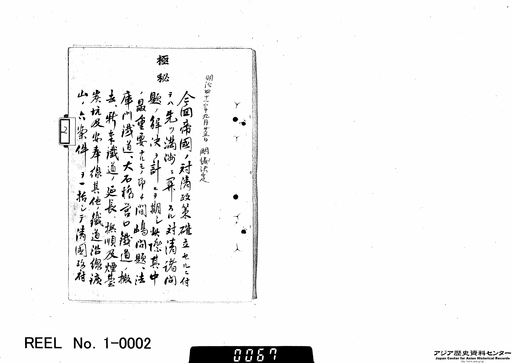 極秘
明治四十一年九月廿五日 閣議決定
今回帝国ノ対清政策確立セルニ付
テハ先ツ満洲ニ関スル対清諸問
題ノ解決ヲ計ルヲ期シ此際其中
ノ最重要ナルモノ即チ間島問題、法
庫門鉄道、大石橋営口鉄道ノ撤
去、新奉鉄道ノ延長、撫順及煙台
炭坑及安奉線其他ノ鉄道沿線鉱
山ノ六案件ヲ一括シテ清国政府
REEL No. 1-0002
0067
アジア歴史資料センター
Japan Center for Asian Historical Records